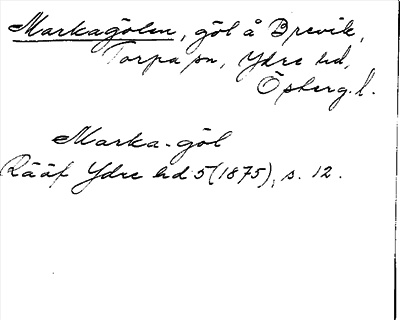 Markagölen, göl å Brevik,
Torpa sn, Ydre hd,
Östergl.
Marka-göl
Rääf Ydre hd 5 (1875), s. 12.